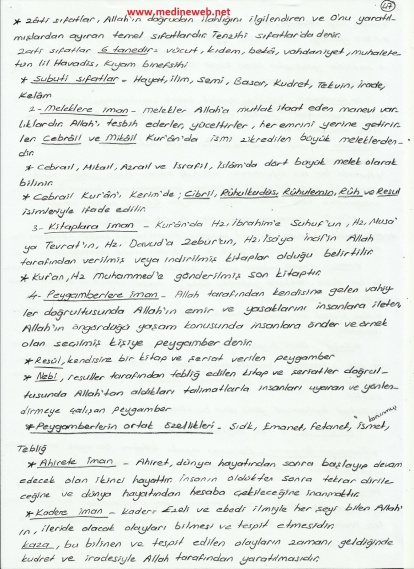 www.medineweb.net
47
* Zati sıfatlar, Allah'ın doğrudan ilahlığını ilgilendiren ve O'nu yaratıl-
mışlardan ayıran temel sıfatlardır. Tenzihi sıfatlar'da denir.
Zati sıfatlar 6 tanedir = vücut, kıdem, bekâ, vahdaniyet, muhalefe-
tün lil Havadis, Kıyam binefsihi
* Subuti sıfatlar = Hayat, ilim, Semi, Basar, Kudret, Tekvin, irade,
Kelâm
2- Meleklere iman - melekler Allah'a mutlak itaat eden manevi var-
lıklardır. Allah'ı tesbih ederler, yüceltirler, her emrini yerine getirir-
ler. Cebrâil ve Mikâil Kur'ân'da ismi zikredilen büyük meleklerden-
dir.
* Cebrail, Mikail, Azrail ve İsrafil, İslâm'da dört büyük melek olarak
bilinir.
* Cebrail Kur'ân'ı Kerim'de; Cibril, Rûhulkudüs, Rûhulemin, Rûh ve Resul
isimleriyle ifade edilir.
3- Kitaplara iman - Kur'ânda Hz. İbrahim'e Suhuf'un, Hz. Musa'
ya Tevrat'ın, Hz. Davud'a Zebur'un, Hz. İsa'ya İncil'in Allah
tarafından verilmiş veya indirilmiş kitaplar olduğu belirtilir.
* Kur'an, Hz Muhammed'e gönderilmiş son kitaptır.
4- Peygamberlere iman - Allah tarafından kendisine gelen vahiy-
ler doğrultusunda Allah'ın emir ve yasaklarını insanlara ileten,
Allah'ın öngördüğü yaşam konusunda insanlara önder ve örnek
olan seçilmiş kişiye peygamber denir.
* Resûl, kendisine bir kitap ve şeriat verilen peygamber
* Nebi, resuller tarafından tebliğ edilen kitap ve şeriatler doğrul-
tusunda Allah'tan aldıkları talimatlarla insanları uyaran ve yönlen-
dirmeye çalışan peygamber
korunmuş
* Peygamberlerin ortak özellikleri - Sıdk, Emanet, Fetanet, İsmet,
Tebliğ
* Ahirete iman - Ahiret, dünya hayatından sonra başlayıp devam
edecek olan ikinci hayattır. İnsanın öldükten sonra tekrar dirile-
ceğine ve dünya hayatından hesaba çekileceğine inanmaktır.
* Kadere iman - kader: Ezeli ve ebedi ilmiyle her şeyi bilen Allah'
ın, ileride olacak olayları bilmesi ve tespit etmesidir.
kaza, bu bilinen ve tespit edilen olayların zamanı geldiğinde
kudret ve iradesiyle Allah tarafından yaratılmasıdır.